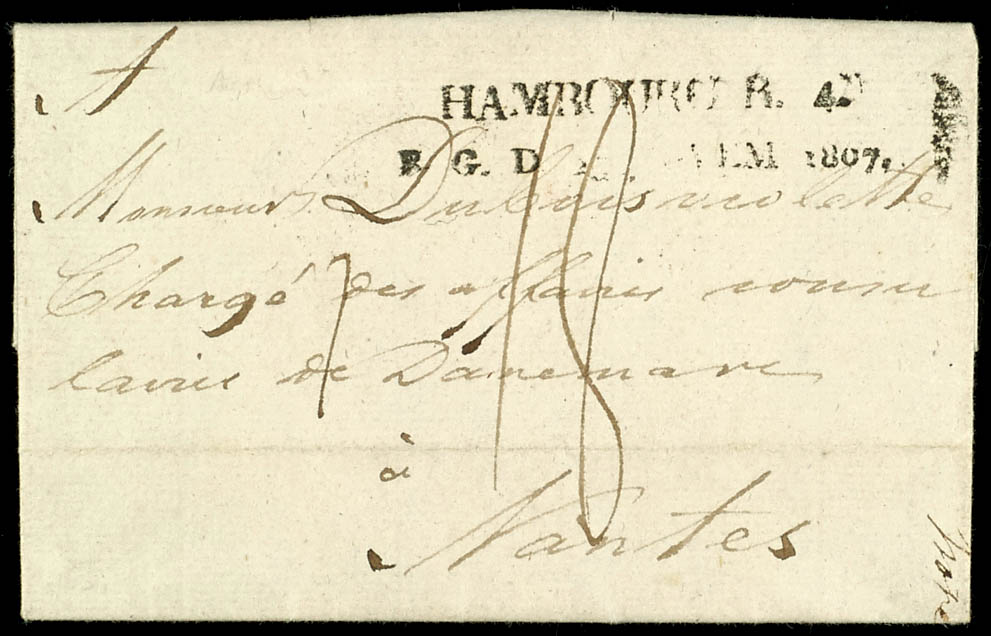 A
HAMBOURG R. 4.
B. G. D. VEM 1807.
Monsieur Dubois violette
Chargé des affaires consu
laires de Danemarc
à
Nantes
7
18